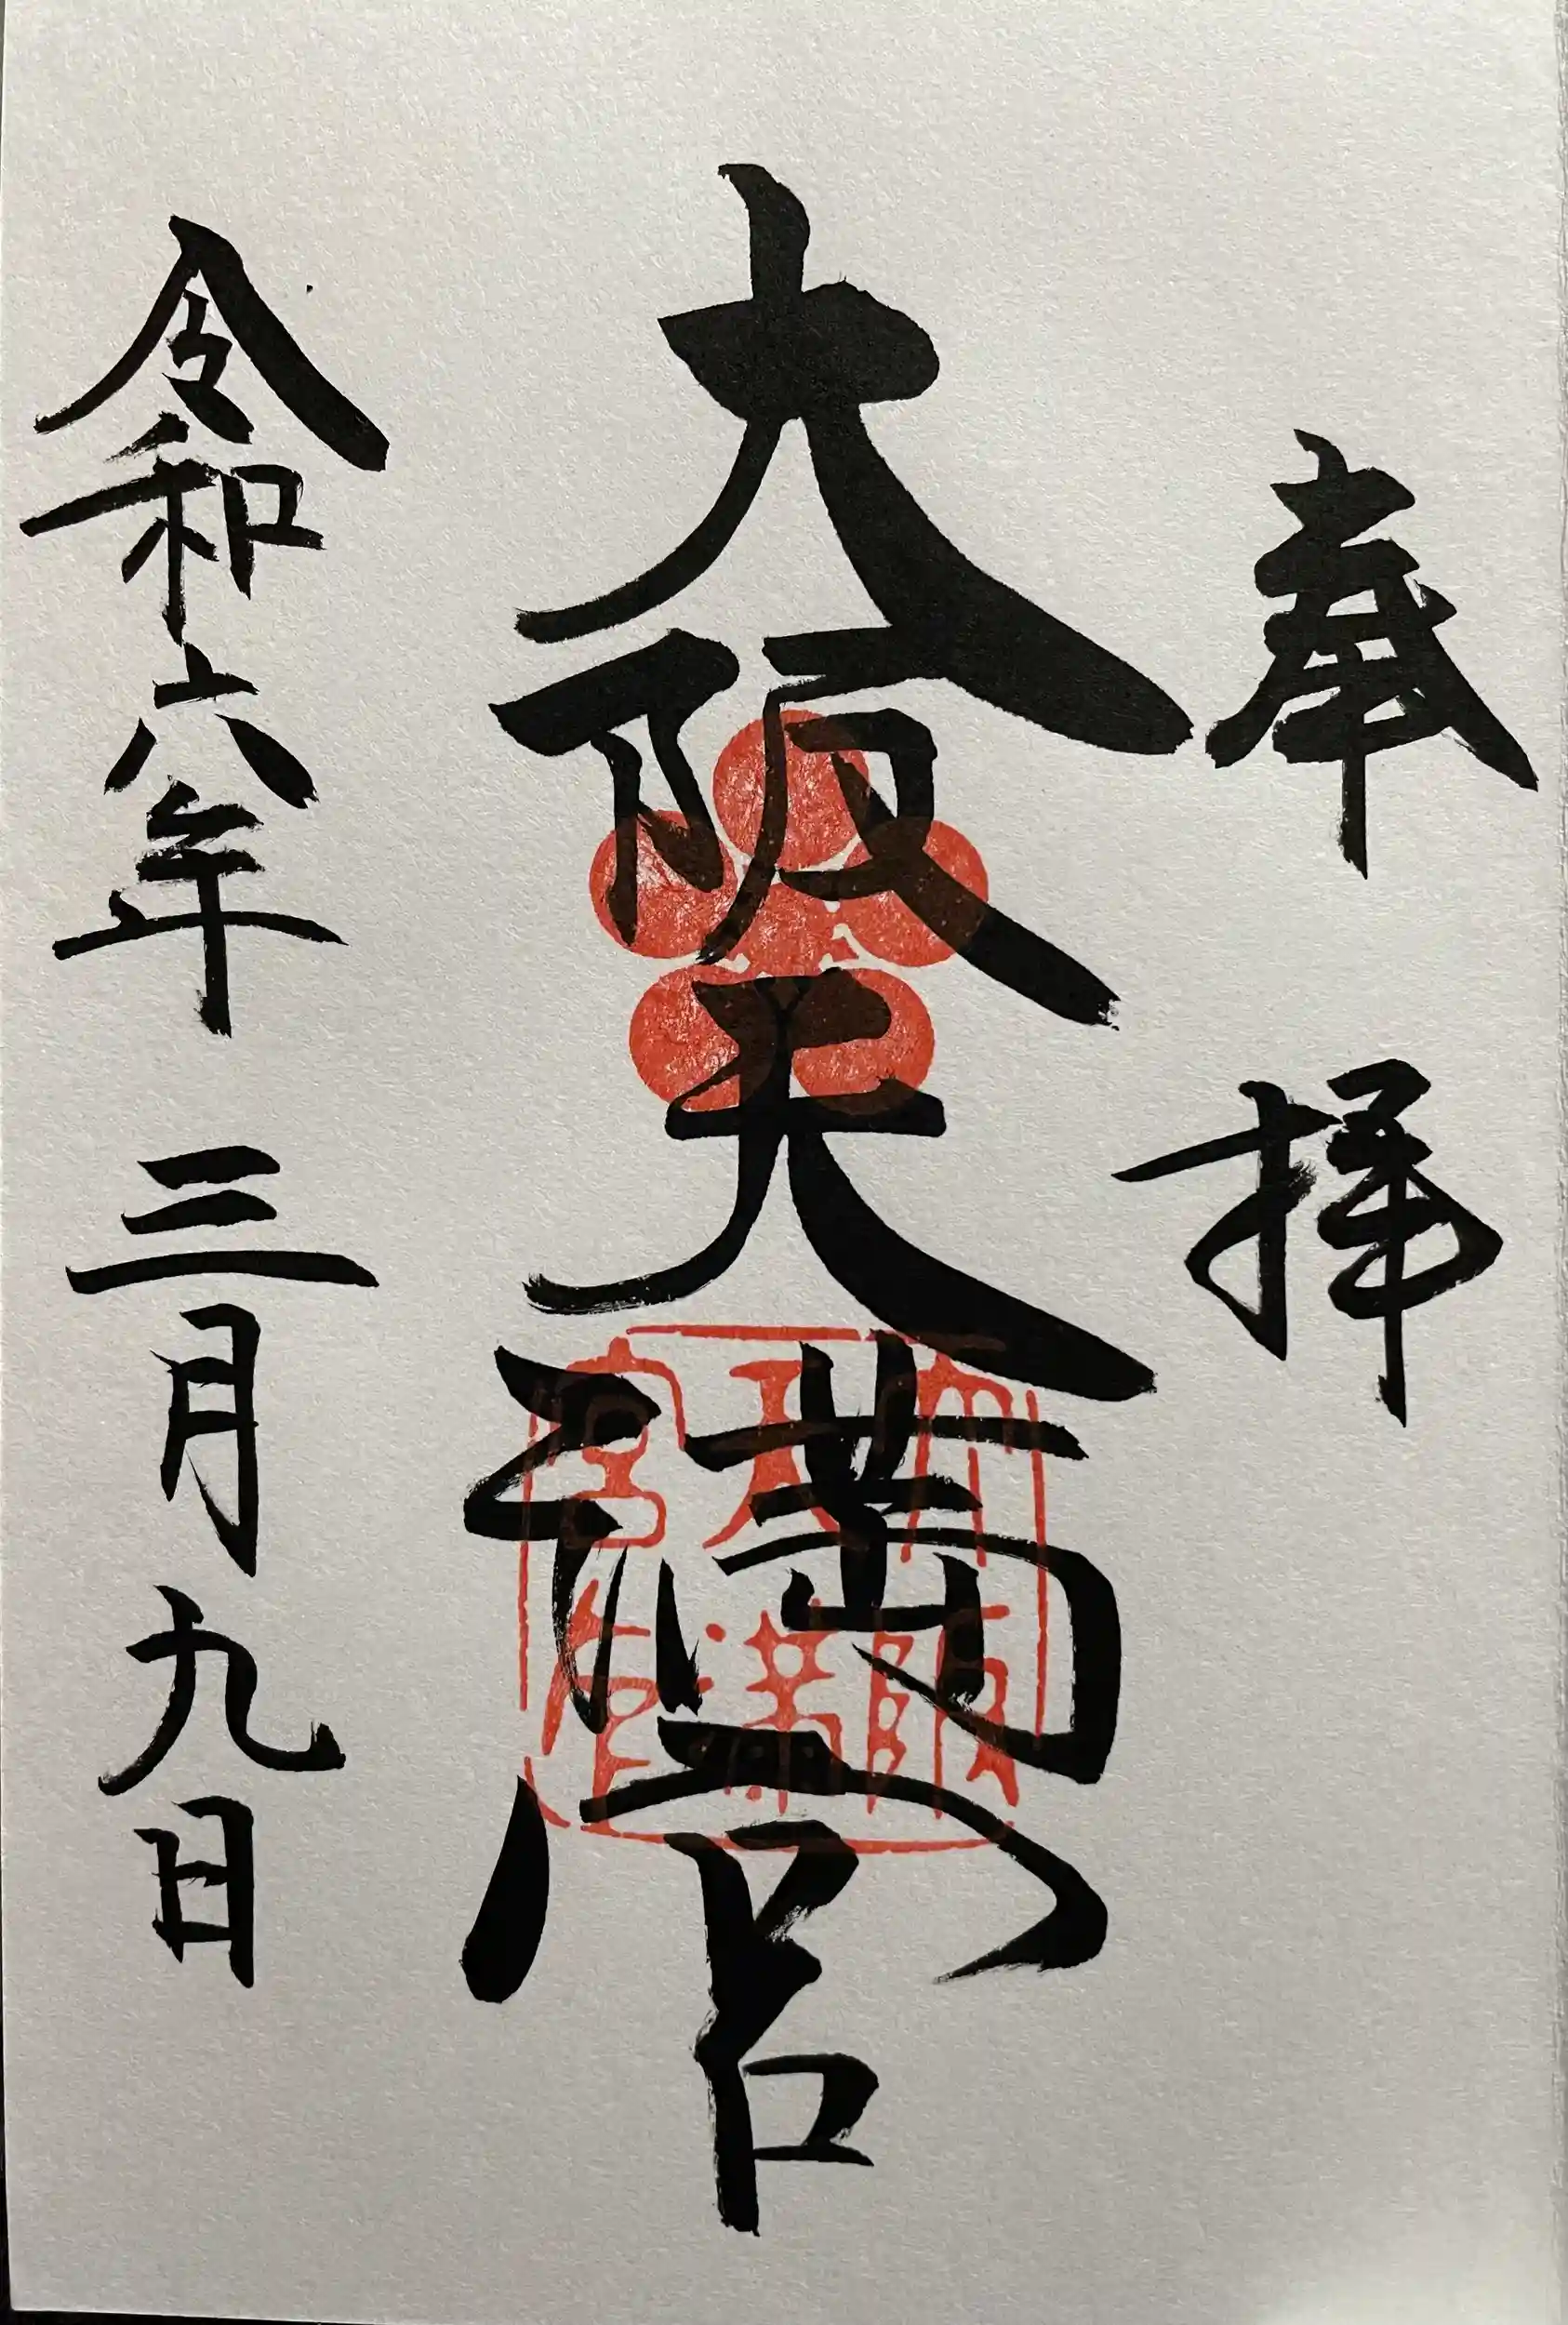 奉拝
大阪天満宮
大阪天満宮存墅
令和六年三月九日